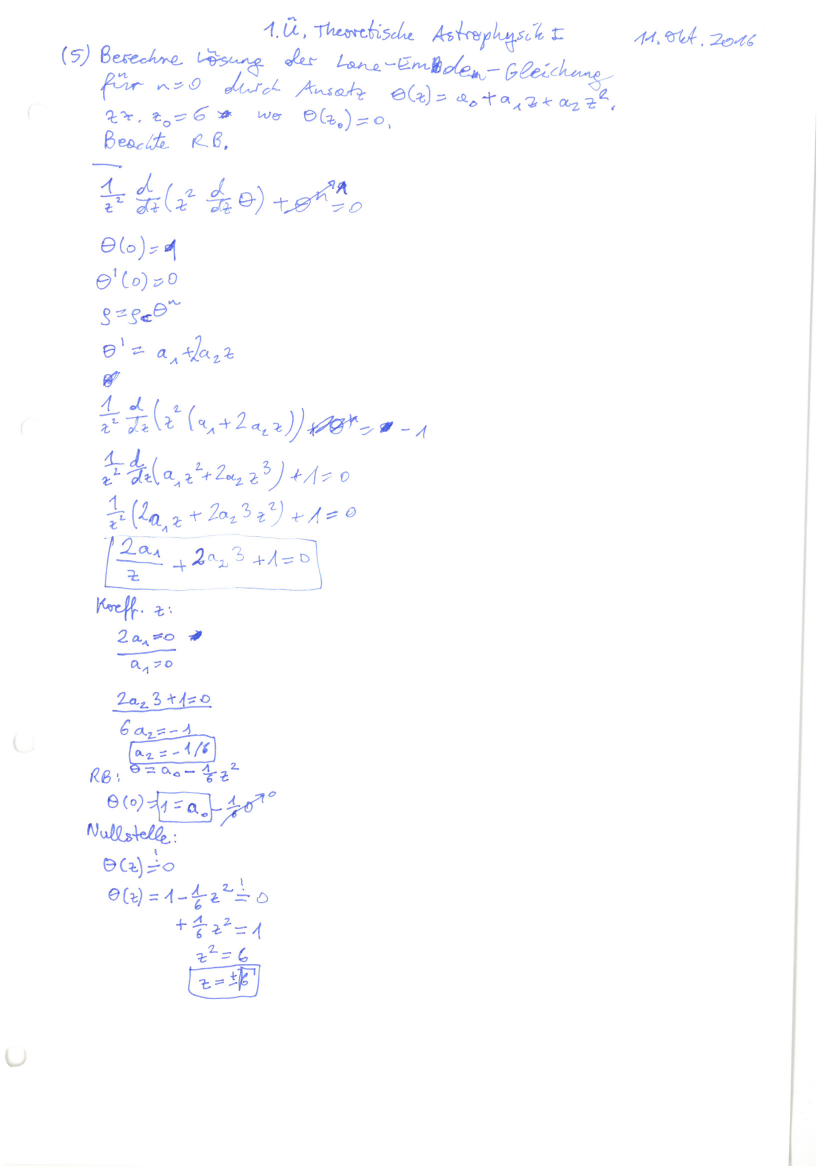 1. Ü, Theoretische Astrophysik I 11. Okt. 2016
(5) Berechne Lösung der Lane-Emden-Gleichung
für n=0 durch Ansatz θ(z)=a₀+a₁z+a₂z².
zz. z₀=6 wo θ(z₀)=0.
Beachte RB.
1/z² d/dz (z² d/dz θ) + θⁿ ↗1 =0
θ(0)=1
θ'(0)=0
ρ=ρcθⁿ
θ' = a₁+2a₂z
1/z² d/dz (z² (a₁+2a₂z)) = -1
1/z² d/dz (a₁z²+2a₂z³) +1=0
1/z² (2a₁z + 2a₂3z²) +1=0
2a₁/z + 2a₂3 +1=0
Koeff. z:
2a₁=0
a₁=0
2a₂3+1=0
6a₂=-1
a₂=-1/6
RB: θ=a₀-1/6 z²
θ(0)=1=a₀-1/6 0 ↗0
Nullstelle:
θ(z)=!0
θ(z)=1-1/6 z² =! 0
+1/6 z²=1
z²=6
z=±√6